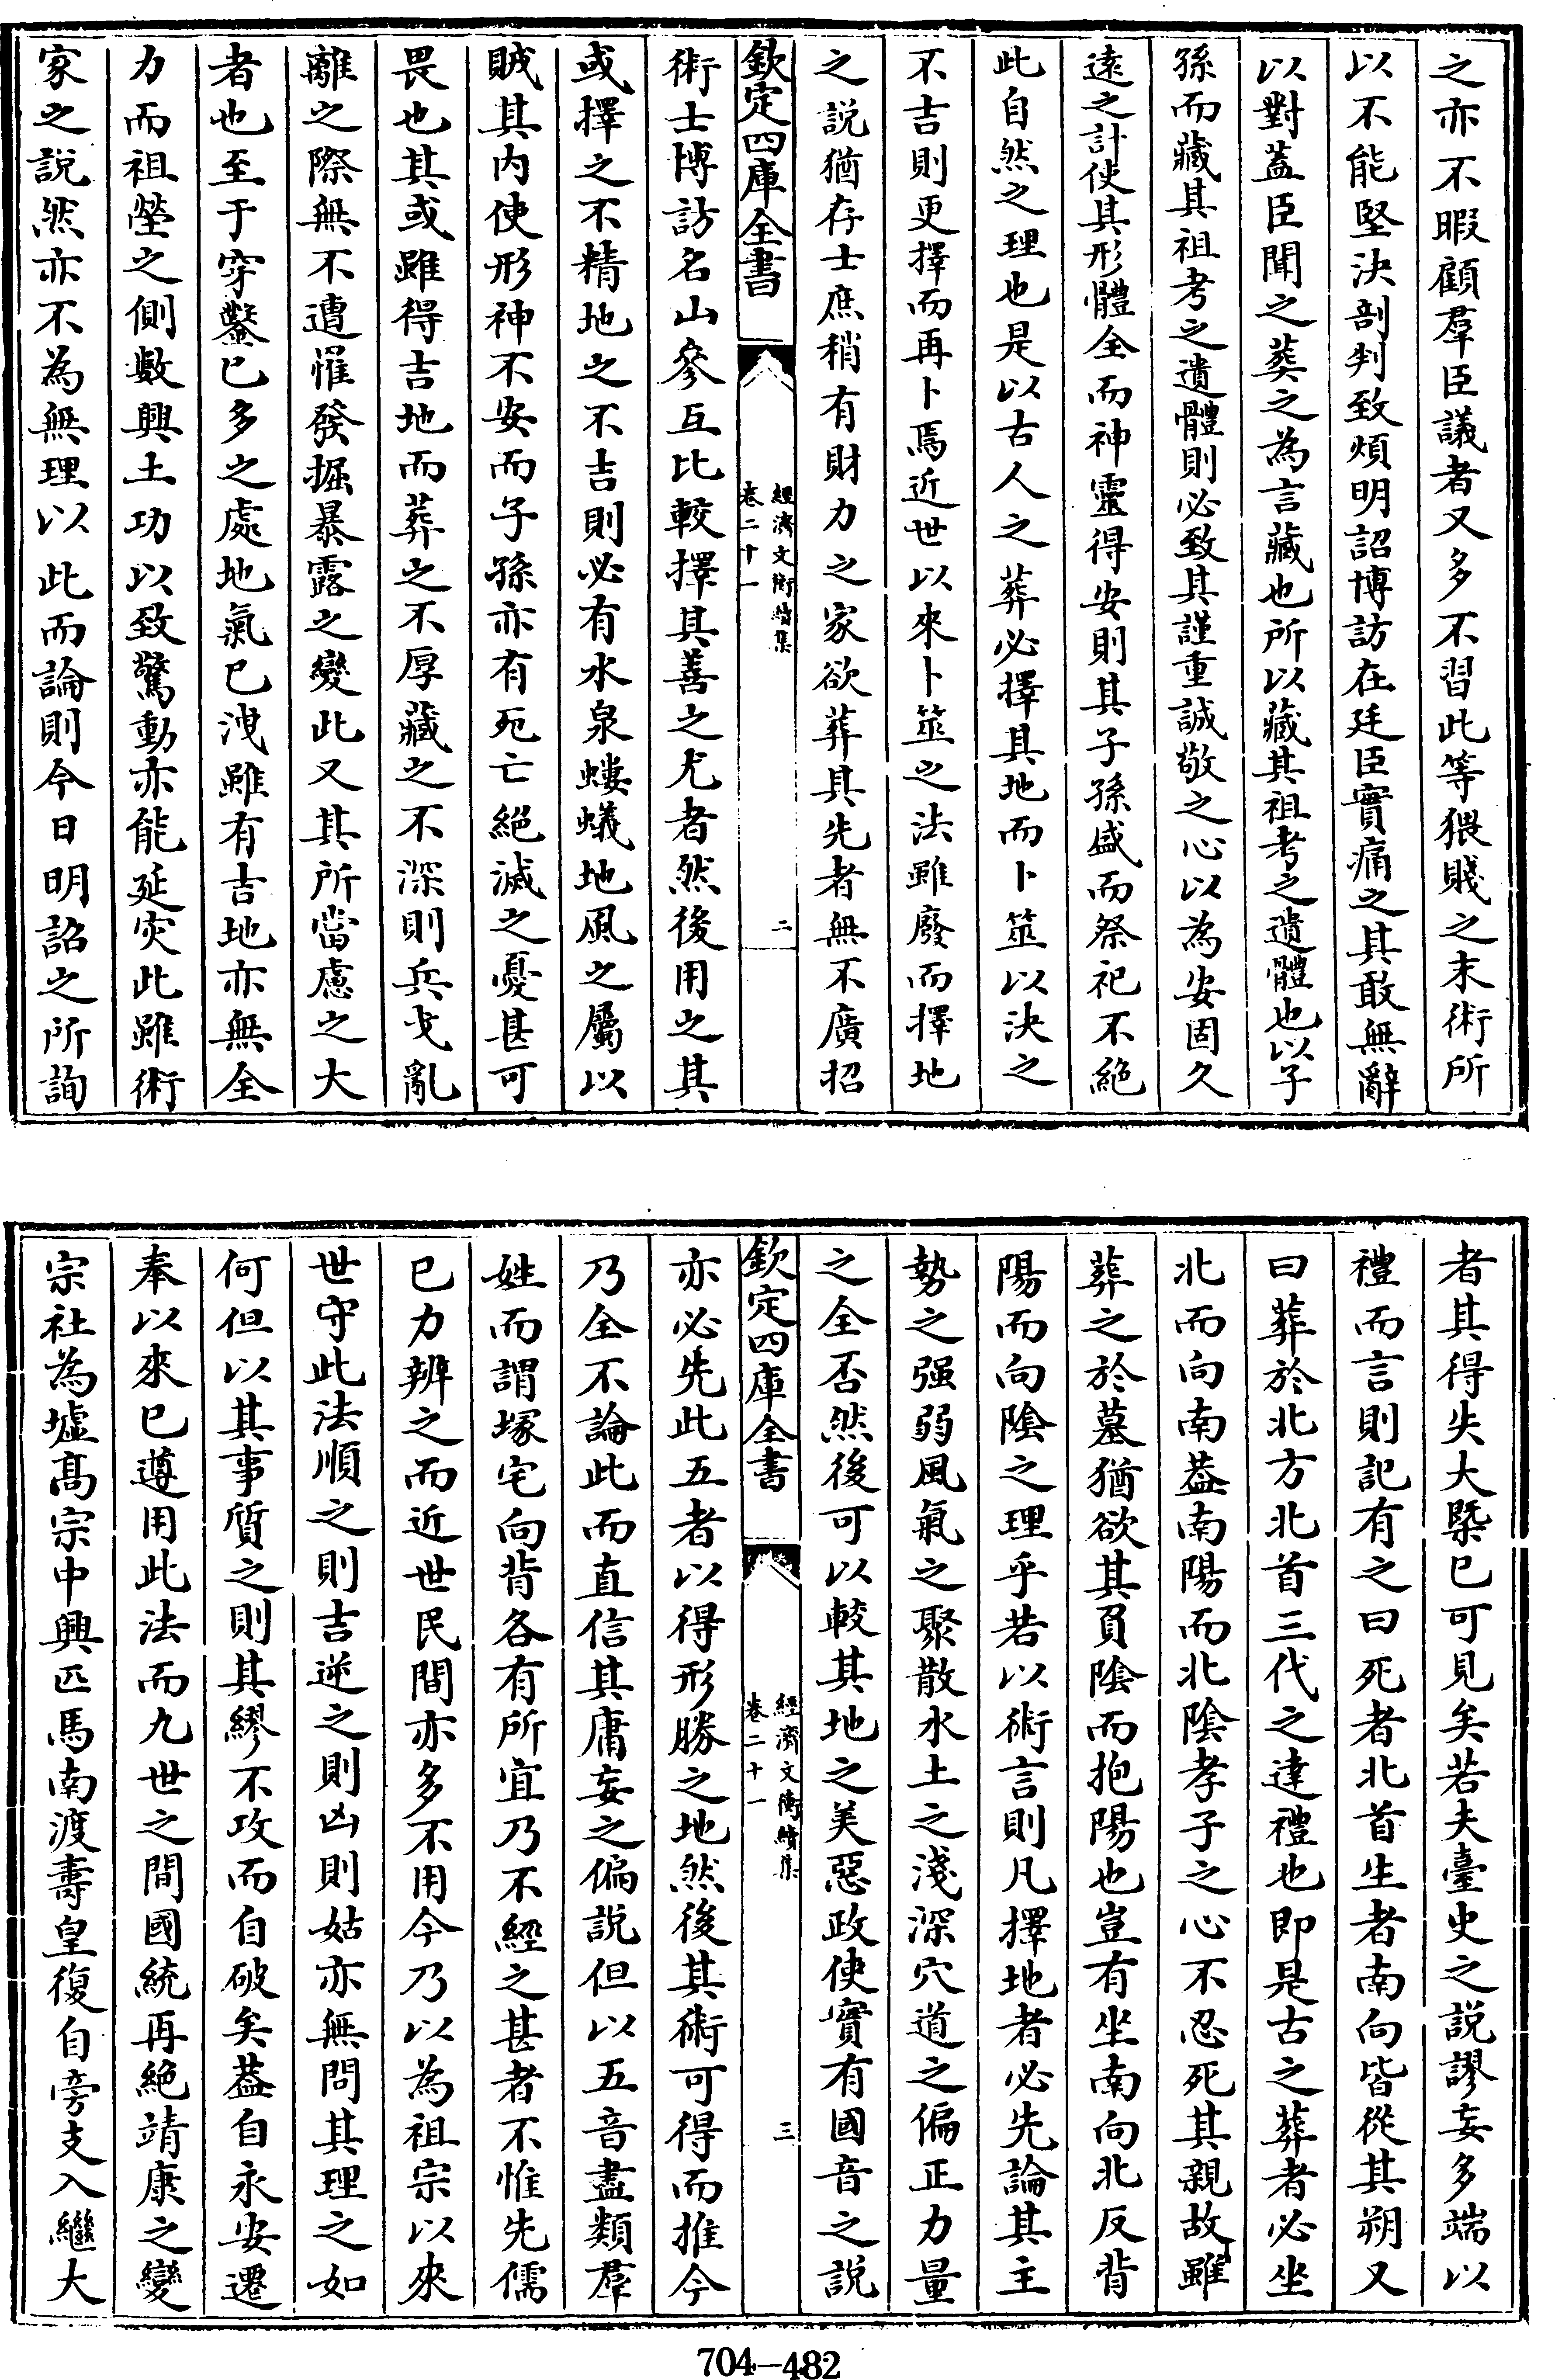 之亦不暇顧羣臣議者又多不習此等猥賤之末術所
以不能堅決剖判致煩明詔博訪在廷臣實痛之其敢無辭
以對蓋臣聞之葬之為言藏也所以藏其祖考之遺體也以子
孫而藏其祖考之遺體則必致其謹重誠敬之心以為安固久
遠之計使其形體全而神靈得安則其子孫盛而祭祀不絕
此自然之理也是以古人之葬必擇其地而卜筮以決之
不吉則更擇而再卜焉近世以來卜筮之法雖廢而擇地
之說猶存士庶稍有財力之家欲葬其先者無不廣招
欽定四庫全書
經濟文衡續集
卷二十一
二
術士博訪名山參互比較擇其善之尤者然後用之其
或擇之不精地之不吉則必有水泉螻蟻地風之屬以
賊其内使形神不安而子孫亦有死亡絕滅之憂甚可
畏也其或雖得吉地而葬之不厚藏之不深則兵戈亂
離之際無不遭罹發掘暴露之變此又其所當慮之大
者也至于穿鑿已多之處地氣已洩雖有吉地亦無全
力而祖塋之側數興土功以致驚動亦能延灾此雖術
家之說然亦不為無理以此而論則今日明詔之所詢
者其得失大槩已可見矣若夫臺史之說謬妄多端以
禮而言則記有之曰死者北首生者南向皆從其朔又
曰葬於北方北首三代之達禮也即是古之葬者必坐
北而向南葢南陽而北陰孝子之心不忍死其親故雖
葬之於墓猶欲其負陰而抱陽也豈有坐南向北反背
陽而向陰之理乎若以術言則凡擇地者必先論其主
勢之强弱風氣之聚散水土之淺深穴道之偏正力量
之全否然後可以較其地之美惡政使實有國音之說
欽定四庫全書
經濟文衡續集
卷二十一
三
亦必先此五者以得形勝之地然後其術可得而推今
乃全不論此而直信其庸妄之偏說但以五音盡類羣
姓而謂塚宅向背各有所宜乃不經之甚者不惟先儒
已力辨之而近世民間亦多不用今乃以為祖宗以來
世守此法順之則吉逆之則凶則姑亦無問其理之如
何但以其事質之則其繆不攻而自破矣葢自永安遷
奉以來已遵用此法而九世之間國統再絕靖康之變
宗社為墟髙宗中興匹馬南渡壽皇復自旁支入繼大
704-482